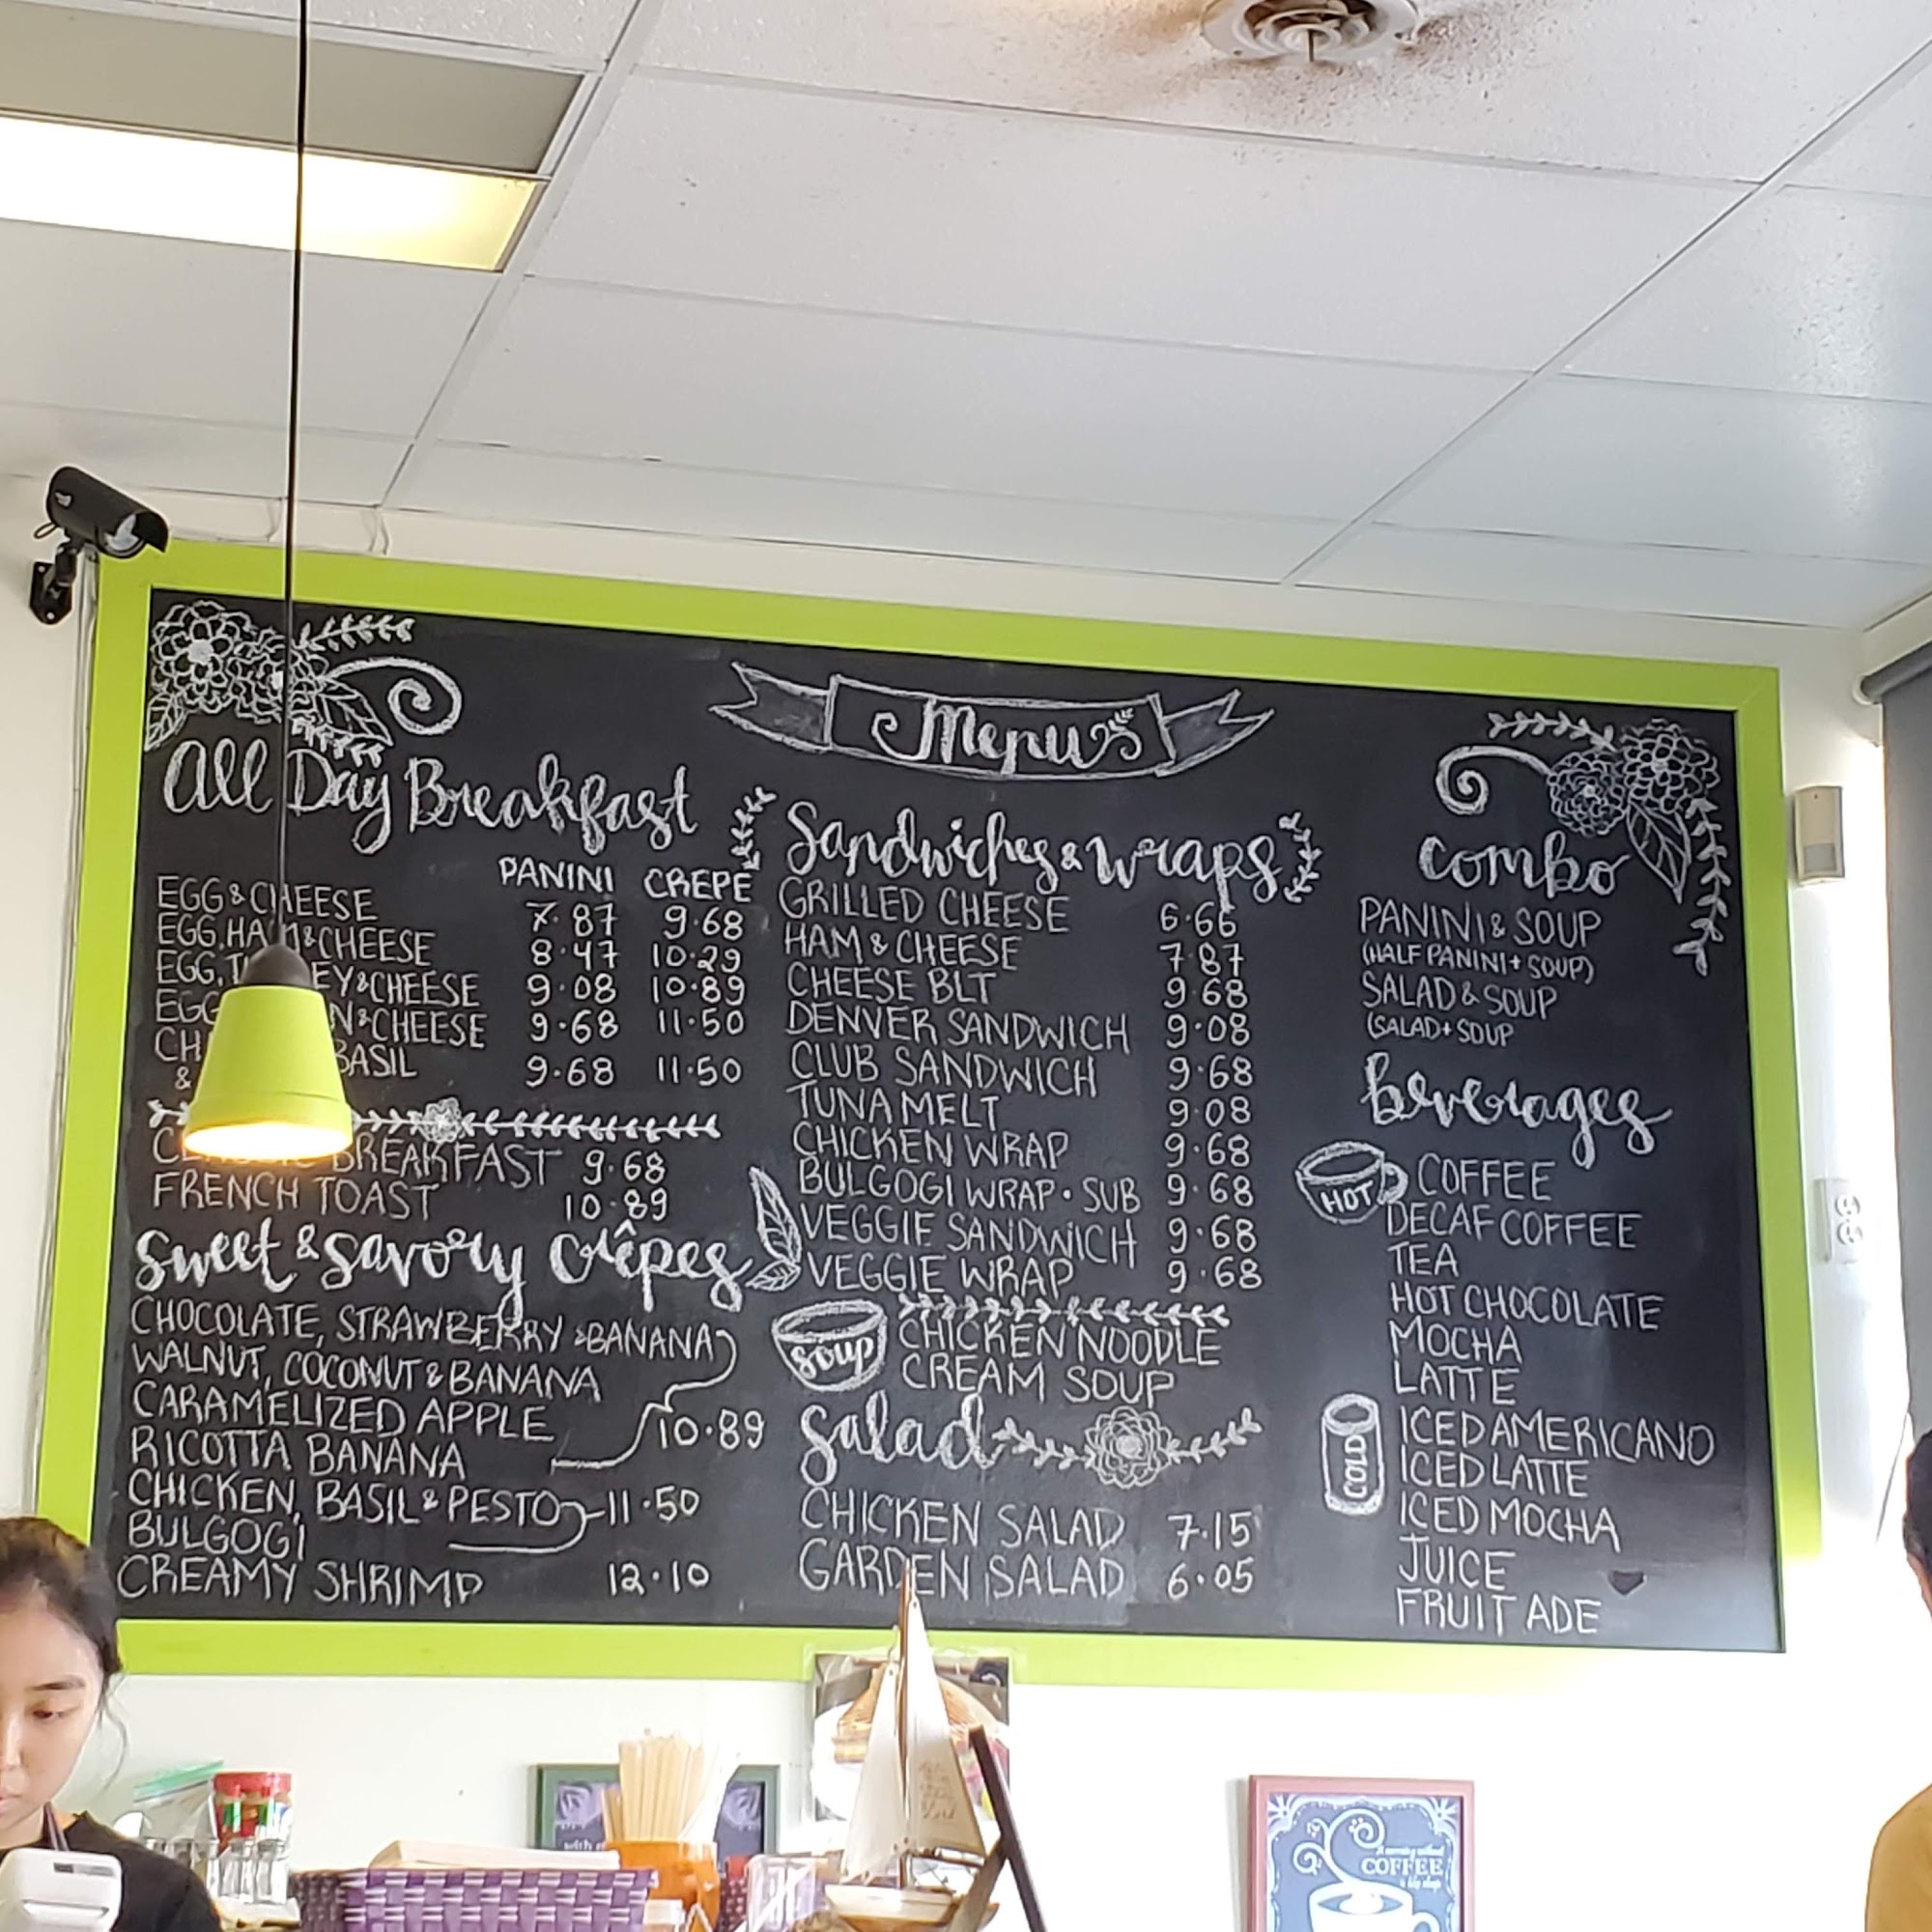 Menus
All Day Breakfast
PANINI CREPE
EGG & CHEESE 7.87 9.68
EGG, HAM & CHEESE 8.47 10.29
EGG, & CHEESE 9.08 10.89
EGG & CHEESE 9.68 11.50
BASIL
& 9.68 11.50
BREAKFAST 9.68
FRENCH TOAST 10.89
Sweet & Savory Crêpes
CHOCOLATE, STRAWBERRY & BANANA
WALNUT, COCONUT & BANANA
CARAMELIZED APPLE 10.89
RICOTTA BANANA
CHICKEN, BASIL & PESTO 11.50
BULGOGI
CREAMY SHRIMP 12.10
Sandwiches & Wraps
GRILLED CHEESE 6.66
HAM & CHEESE 7.87
CHEESE BLT 9.68
DENVER SANDWICH 9.08
CLUB SANDWICH 9.68
TUNA MELT 9.08
CHICKEN WRAP 9.68
BULGOGI WRAP • SUB 9.68
VEGGIE SANDWICH 9.68
VEGGIE WRAP 9.68
Soup
CHICKEN NOODLE
CREAM SOUP
Salad
CHICKEN SALAD 7.15
GARDEN SALAD 6.05
Combo
PANINI & SOUP
(HALF PANINI + SOUP)
SALAD & SOUP
(SALAD + SOUP
beverages
HOT
COFFEE
DECAF COFFEE
TEA
HOT CHOCOLATE
MOCHA
LATTE
COLD
ICED AMERICANO
ICED LATTE
ICED MOCHA
JUICE
FRUIT ADE
COFFEE